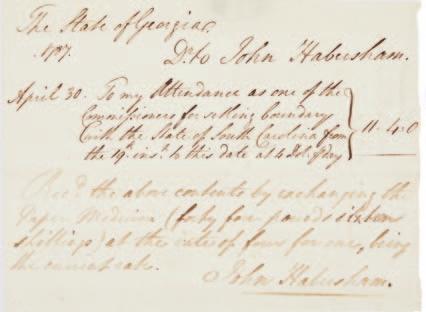 The State of Georgia
1787. Dr. to John Habersham.
April 30. To my Attendance as one of the
Commissioners for settling boundary
with the State of South Carolina from
the 19th inst. to this date at 4 Dol. pr day 11. 4. 0
Rec'd the above contents by exchanging the
Paper Medium (forty four pounds sixteen
shillings) at the rate of four for one, being
the current rate.
John Habersham.